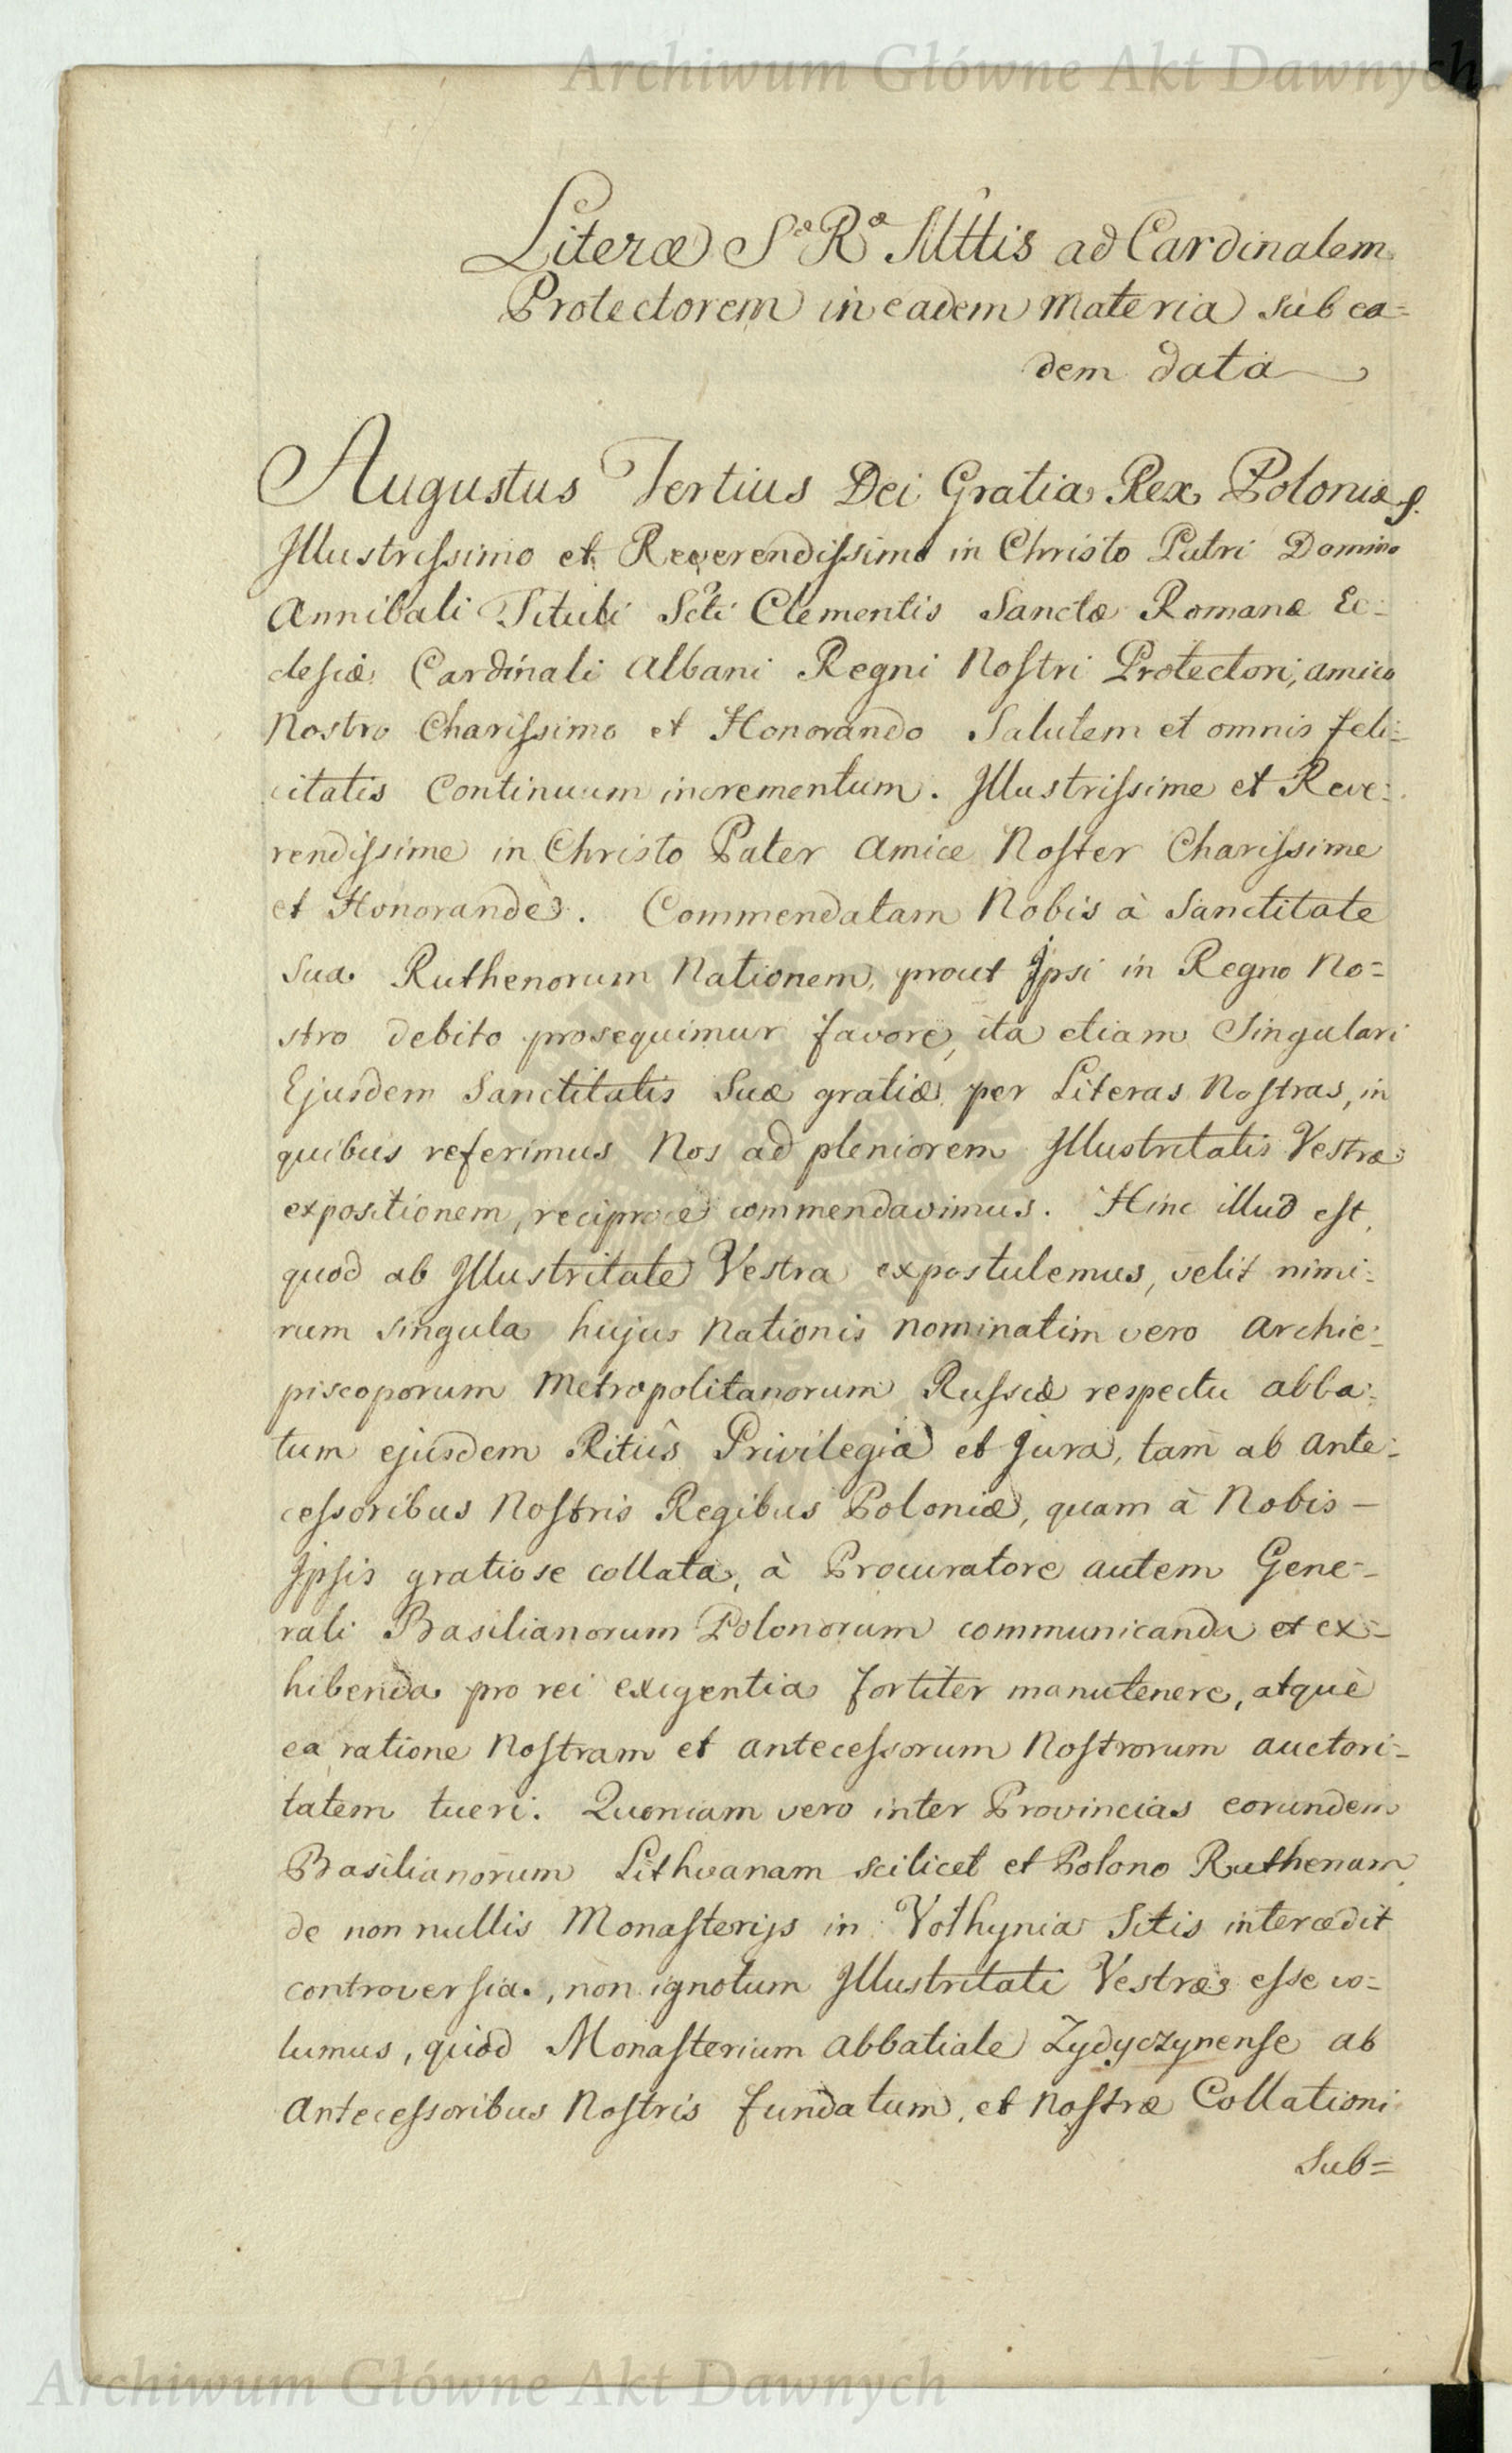 Archiwum Główne Akt Dawnych
Literæ Sæ Ræ Mttis ad Cardinalem
Protectorem in eadem materia sub ea=
dem data
Augustus Tertius Dei Gratia Rex Poloniæ
Illustrissimo et Reverendissimo in Christo Patri Domino
Annibali Tituli Scti Clementis Sanctæ Romanæ Ec=
clesiæ Cardinali Albani Regni Nostri Protectori, amico
Nostro Charissimo et Honorando Salutem et omnis feli=
citatis Continuum incrementum. Illustrissime et Reve=
rendissime in Christo Pater Amice Noster Charissime
et Honorande. Commendatam Nobis à Sanctitate
Sua Ruthenorum Nationem, prout Ipsi in Regno No=
stro debito prosequimur favore, ita etiam Singulari
Ejusdem Sanctitatis Suæ gratiæ per Literas Nostras, in
quibus referimus Nos ad pleniorem Illustritatis Vestræ
expositionem, reciproce commendavimus. Hinc illud est,
quod ab Illustritate Vestra expostulemus, velit nimi=
rum singula hujus Nationis nominatim vero Archie=
piscoporum Metropolitanorum Russiæ respectu abba=
tum ejusdem Ritûs Privilegia et Jura, tam ab Ante=
cessoribus Nostris Regibus Poloniæ, quam à Nobis –
Ipsis gratiose collata, à Procuratore autem Gene=
rali Basilianorum Polonorum communicanda et ex=
hibenda pro rei exigentia fortiter manutenere, atquè
ea ratione Nostram et antecessorum Nostrorum auctori=
tatem tueri. Quoniam vero inter Provincias eorundem
Basilianorum Lithvanam scilicet et Polono Ruthenam
de non nullis Monasterijs in Volhynia Sitis intercedit
controversia, non ignotum Illustritati Vestræ esse vo=
lumus, quod Monasterium Abbatiale Zydyczynense ab
Antecessoribus Nostris fundatum, et Nostræ Collationi
Sub=
Archiwum Główne Akt Dawnych